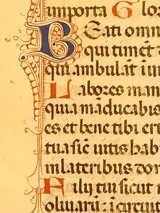 importa Glor
Beati omni
qui timēt d
qui ambulāt i ui
Labores man
quia māducabis
es et bene tibi eri
tua sic uitis hab
in lateribus dom
Filij tui sicut n
oliuarū: i circuit